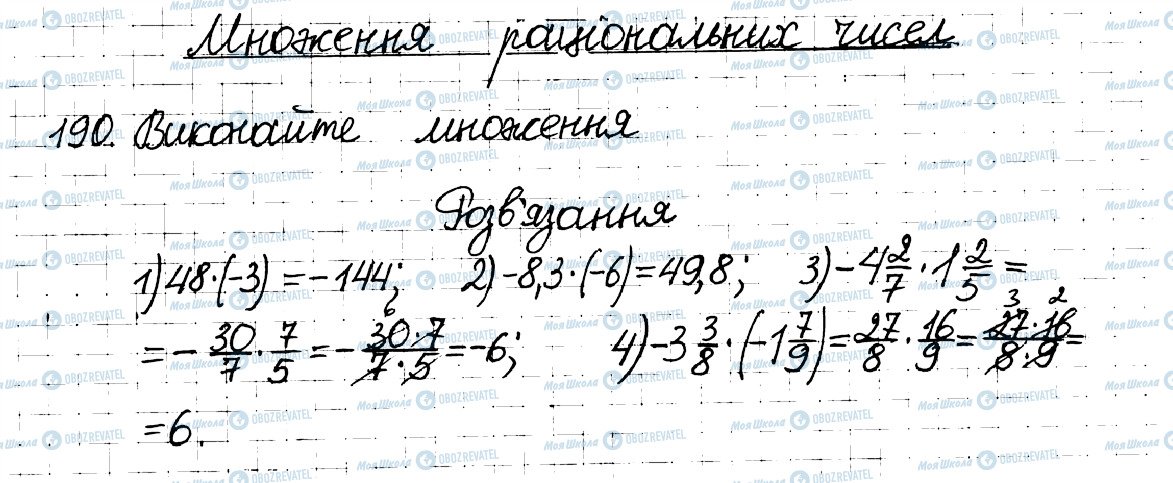 Множення раціональних чисел
190. Виконайте множення
Розв'язання
1) 48·(-3) = -144; 2) -8,3·(-6) = 49,8; 3) -4 2/7 · 1 2/5 =
= - 30/7 · 7/5 = - 30·7/7·5 = -6; 4) -3 3/8 · (-1 7/9) = 27/8 · 16/9 = 27·16/8·9 =
= 6.